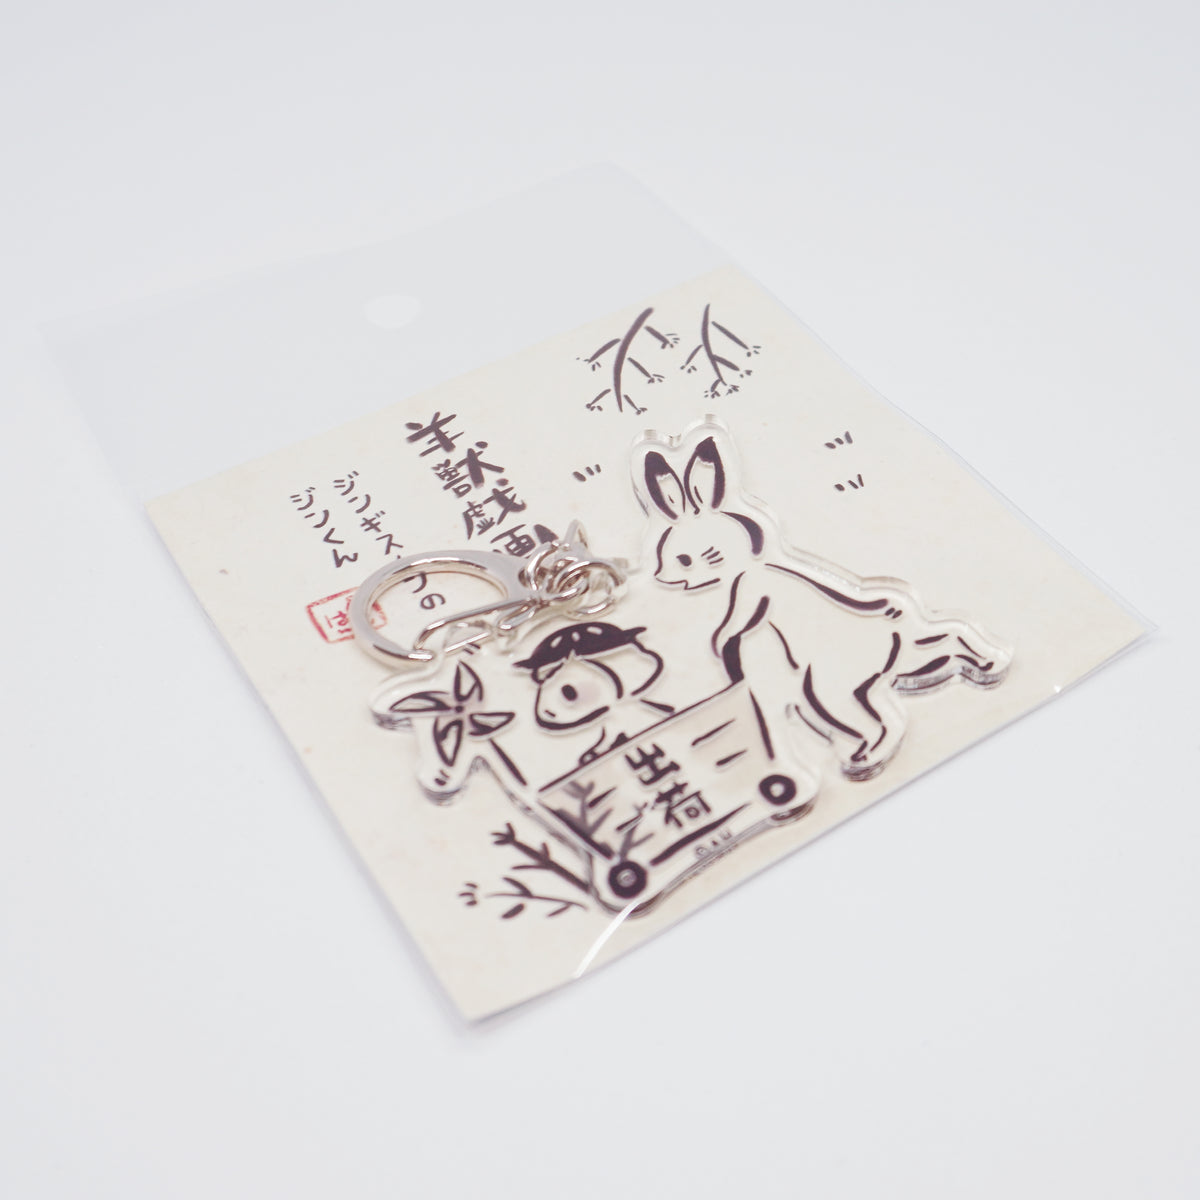 羊獣戯画
ジンギスカンの
ジンくん
出荷